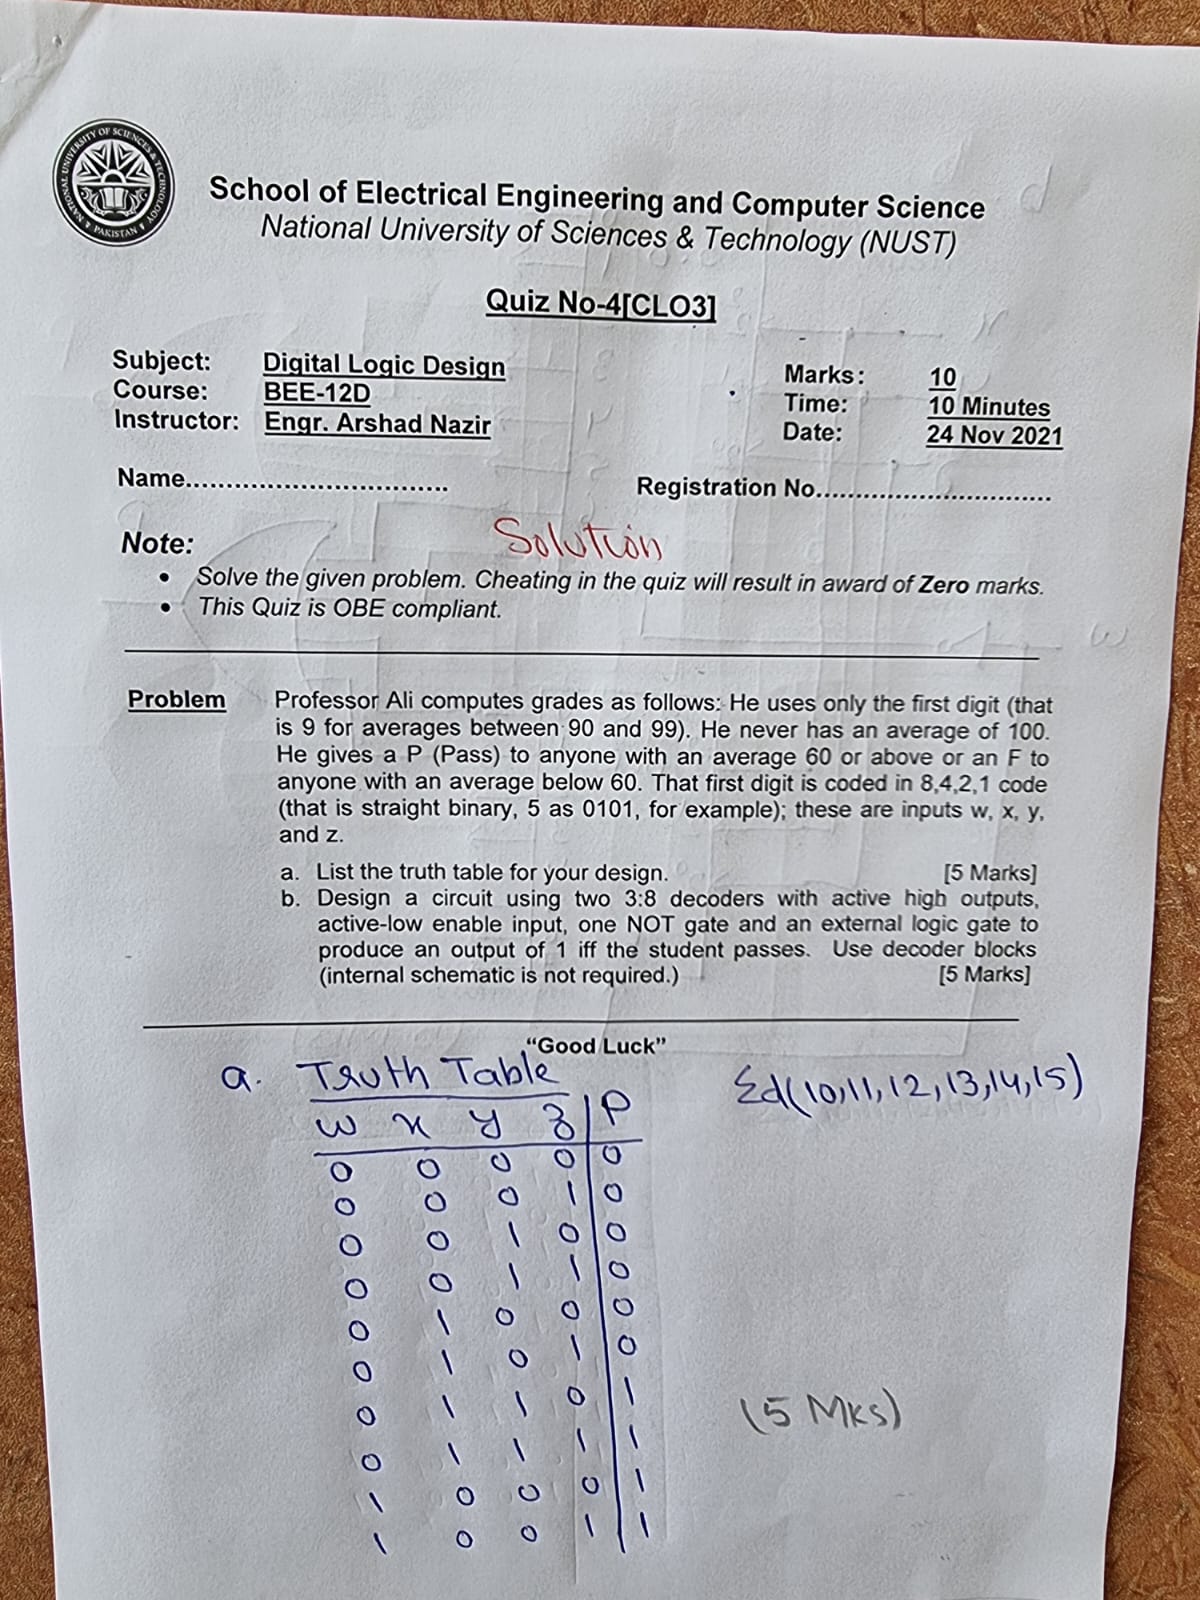 NATIONAL UNIVERSITY OF SCIENCES & TECHNOLOGY
PAKISTAN
School of Electrical Engineering and Computer Science
National University of Sciences & Technology (NUST)
Quiz No-4[CLO3]
Subject: Digital Logic Design Marks: 10
Course: BEE-12D Time: 10 Minutes
Instructor: Engr. Arshad Nazir Date: 24 Nov 2021
Name................................ Registration No..............................
Solution
Note:
• Solve the given problem. Cheating in the quiz will result in award of Zero marks.
• This Quiz is OBE compliant.
Problem Professor Ali computes grades as follows: He uses only the first digit (that
is 9 for averages between 90 and 99). He never has an average of 100.
He gives a P (Pass) to anyone with an average 60 or above or an F to
anyone with an average below 60. That first digit is coded in 8,4,2,1 code
(that is straight binary, 5 as 0101, for example); these are inputs w, x, y,
and z.
a. List the truth table for your design. [5 Marks]
b. Design a circuit using two 3:8 decoders with active high outputs,
active-low enable input, one NOT gate and an external logic gate to
produce an output of 1 iff the student passes. Use decoder blocks
(internal schematic is not required.) [5 Marks]
“Good Luck”
a. Truth Table Σd(10,11,12,13,14,15)
w x y z P
0 0 0 0 0
0 0 0 1 0
0 0 1 0 0
0 0 1 1 0
0 1 0 0 0
0 1 0 1 0
0 1 1 0 1
(5 Mks)
0 1 1 1 1
1 0 0 0 1
1 0 0 1 1